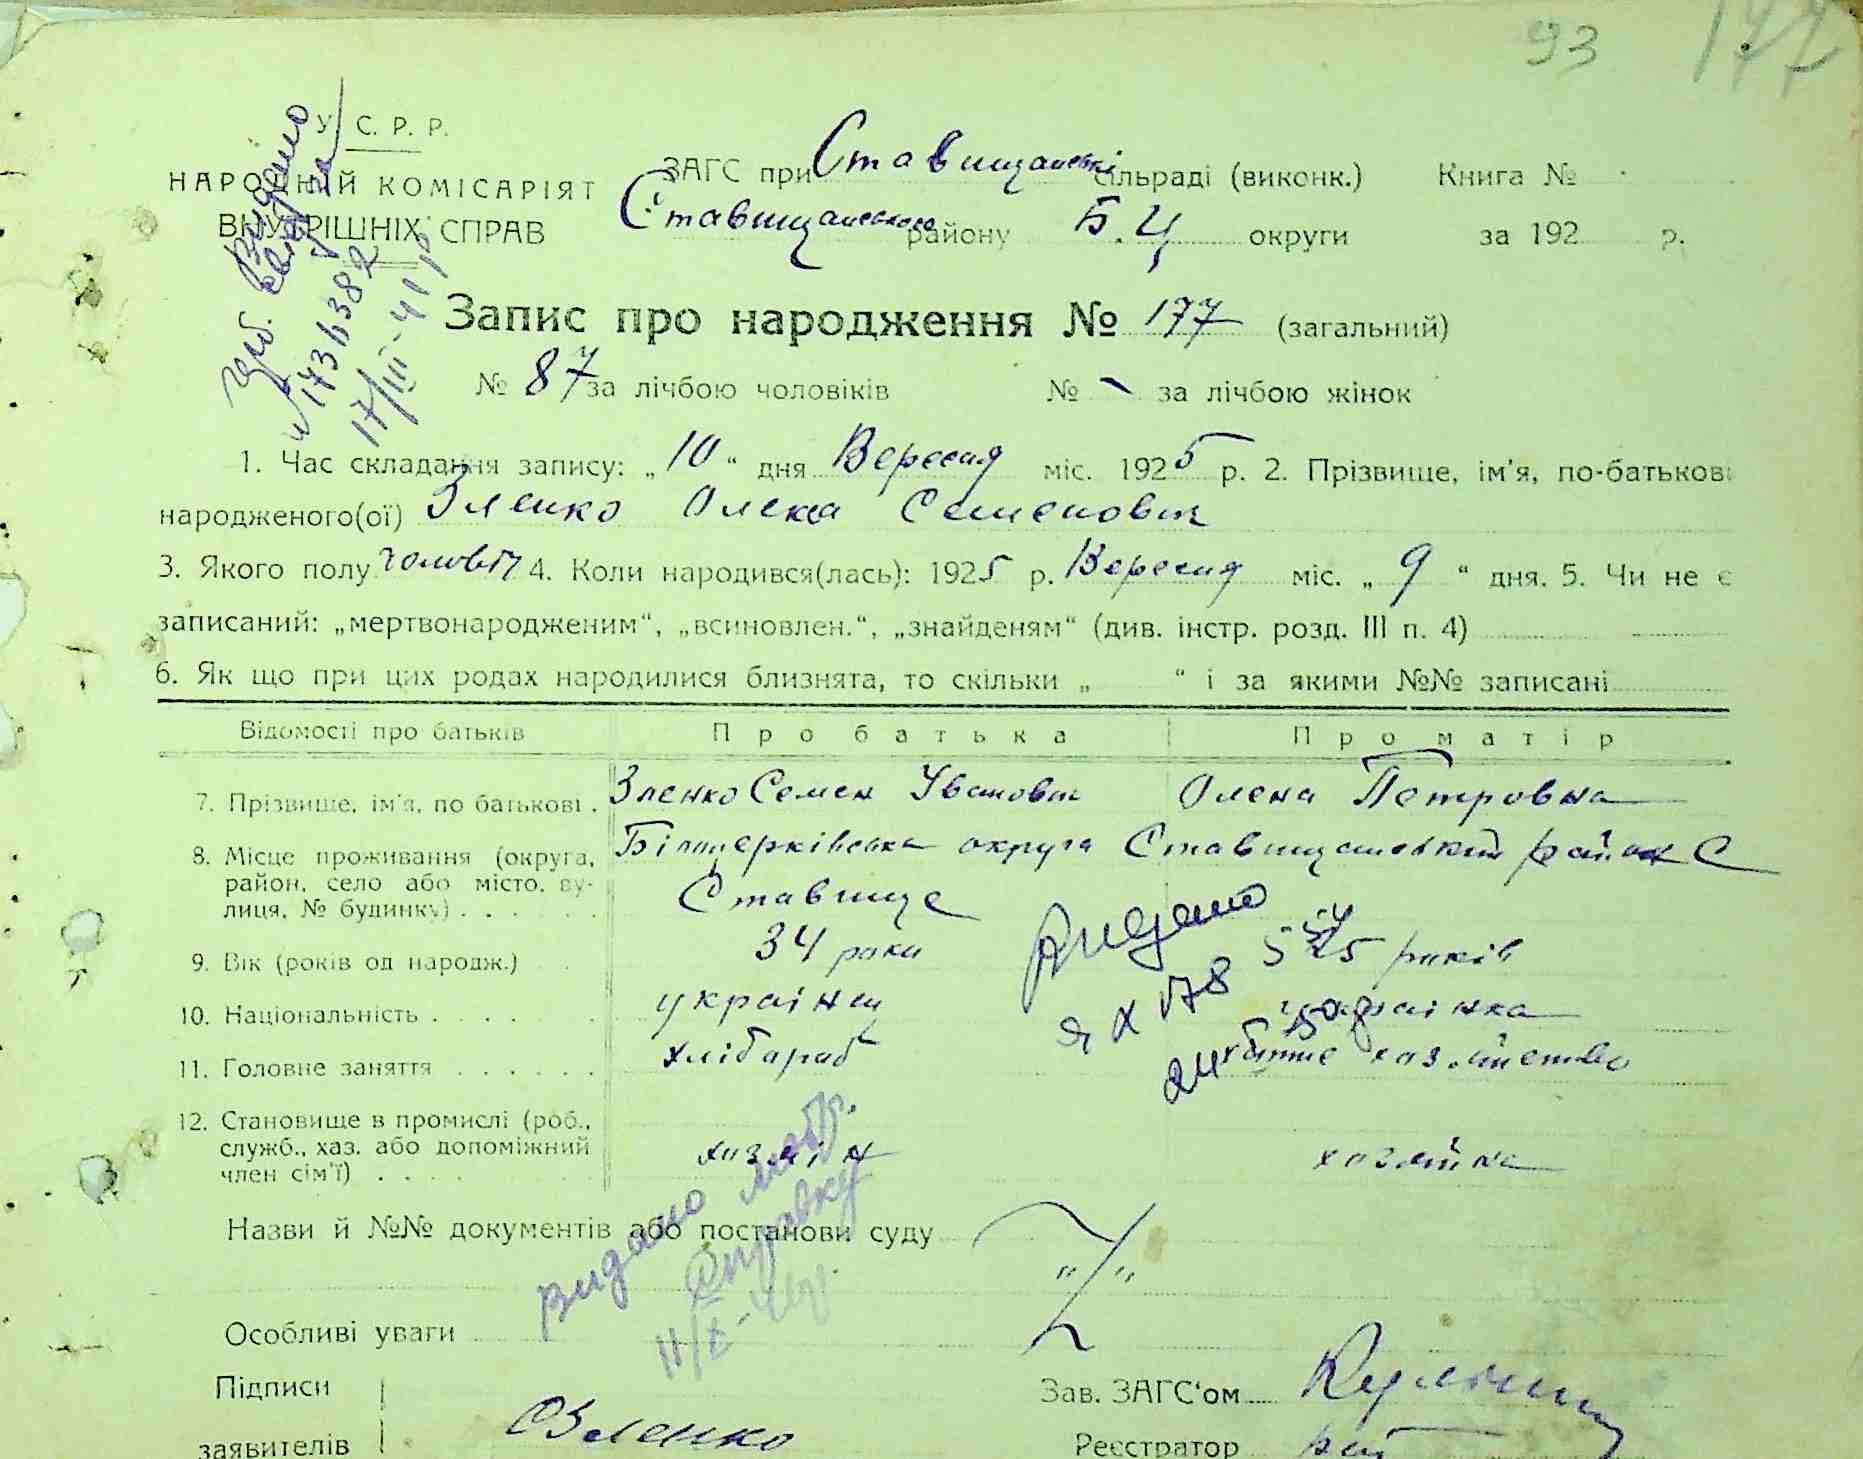 93 177
У. С. Р. Р.
НАРОДНІЙ КОМІСАРІЯТ
ВНУТРІШНІХ СПРАВ
ЗАГС при Ставищанські сільраді (виконк.) Книга №
Ставищанського району Б.Ц округи за 192 р.
Видано
Запис про народження № 177 (загальний)
№ 87 за лічбою чоловіків № - за лічбою жінок
1. Час складання запису: „10“ дня Вересня міс. 1925 р. 2. Прізвище, ім'я, по-батькові
народженого(ої) Зленко Олекса Семенович
3. Якого полу чоловіч 4. Коли народився(лась): 1925 р. Вересня міс. „9“ дня. 5. Чи не є
записаний: „мертвонародженим“, „всиновлен.“, „знайденям“ (див. інстр. розд. III п. 4)
6. Як що при цих родах народилися близнята, то скільки „ “ і за якими №№ записані
Відомості про батьків Про батька Про матір
7. Прізвище, ім'я, по батькові . Зленко Семен Уванович Олена Петровна
8. Місце проживання (округа, район, село або місто, вулиця, № будинку) . . . . . . Білоцерківська округа Ставищанський район С
Ставище
Видано
9. Вік (років од народж.) 34 роки 25 років
10. Національність . . . . . . українец українка
11. Головне заняття . . . . . . хлібараб хатнє хазяйство
12. Становище в промислі (роб., служб., хаз. або допоміжний член сім'ї) . . . . хазяін хазяйка
Назви й №№ документів або постанови суду
видано
справку
Особливі уваги
Підписи
заявителів
СЗленко
Зав. ЗАГС'ом
Реєстратор